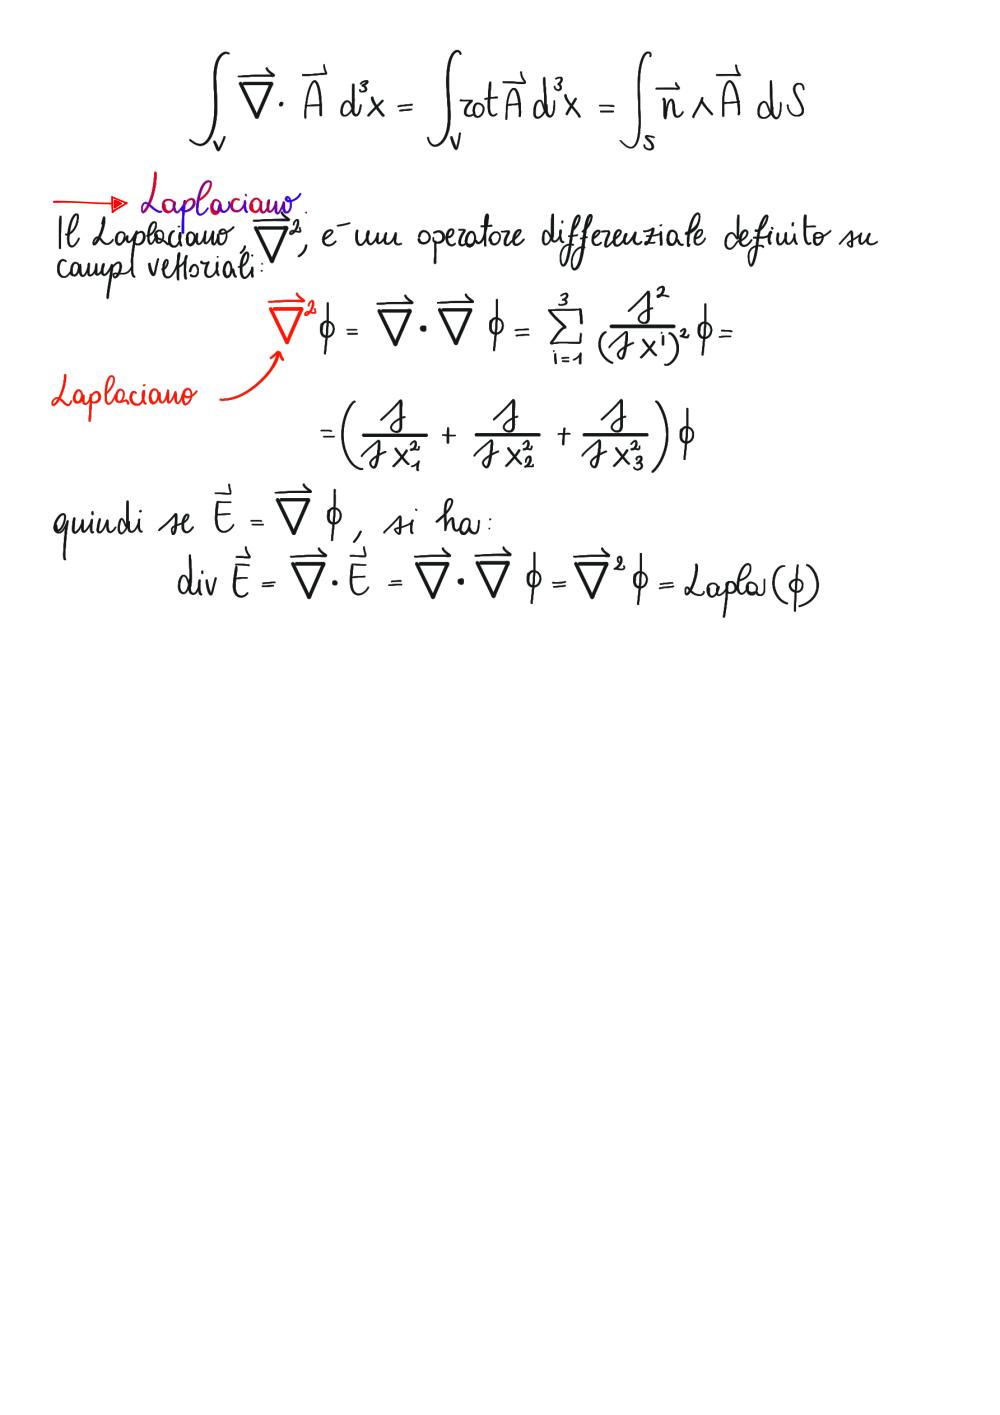 ∫_V ∇⃗ · A⃗ d³x = ∫_V rot A⃗ d³x = ∫_S n⃗ ∧ A⃗ dS
→ Laplaciano:
Il Laplaciano, ∇⃗², è un operatore differenziale definito su
campi vettoriali:
∇⃗² ϕ = ∇⃗ · ∇⃗ ϕ = ∑_{i=1}^{3} ∂²/(∂x^i)² ϕ =
Laplaciano
= (∂/∂x₁² + ∂/∂x₂² + ∂/∂x₃²) ϕ
quindi se E⃗ = ∇⃗ ϕ, si ha:
div E⃗ = ∇⃗ · E⃗ = ∇⃗ · ∇⃗ ϕ = ∇⃗² ϕ = Lapla(ϕ)